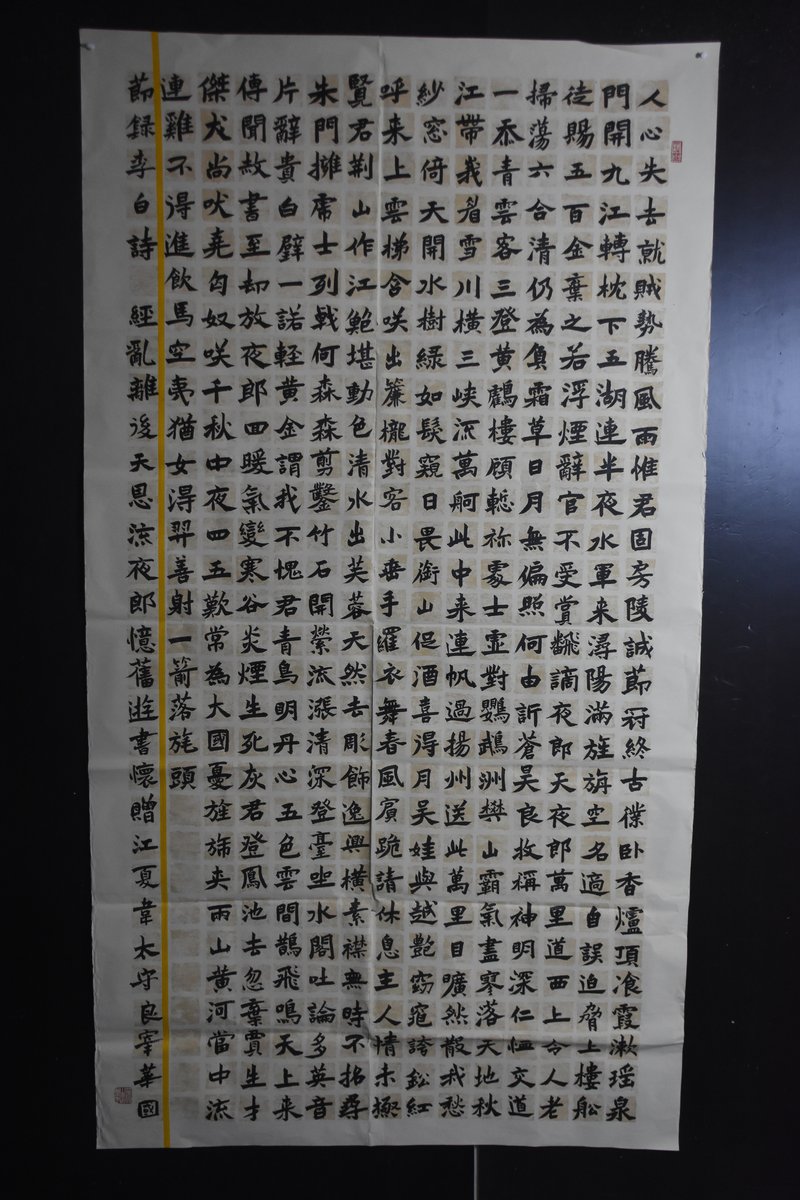 人心失去就賊勢騰風雨惟君固房陵誠節冠終古僕卧香爐頂飡霞漱瑶泉
門開九江轉枕下五湖連半夜水軍来潯陽滿旌旃空名適自誤迫脅上樓船
徒賜五百金棄之若浮煙辭官不受賞翻謫夜郎天夜郎萬里道西上令人老
掃蕩六合清仍為負霜草日月無偏照何由訴蒼昊良牧稱神明深仁恤交道
一忝青雲客三登黄鶴樓顧慙祢處士虛對鸚鵡洲樊山霸氣盡寥落天地秋
江帶峩眉雪川橫三峽流萬舸此中来連帆過揚州送此萬里目曠然散我愁
紗窓倚天開水樹緑如髮窺日畏銜山促酒喜得月吴娃與越艷窈窕誇鈆紅
呼来上雲梯含咲出簾櫳對客小垂手羅衣舞春風賓跪請休息主人情未極
覽君荆山作江鮑堪動色清水出芙蓉天然去彫飾逸興橫素襟無時不招尋
朱門擁虎士列戟何森森剪鑿竹石開縈流漲清深登臺坐水閣吐論多英音
片辭貴白璧一諾輕黄金謂我不愧君青鳥明丹心五色雲間鵲飛鳴天上来
傳聞赦書至却放夜郎四暖氣變寒谷炎煙生死灰君登鳳池去忽棄賈生才
傑犬尚吠堯匈奴咲千秋中夜四五歎常為大國憂旌旆夾兩山黄河當中流
連雞不得進飲馬空夷猶女得羿善射一箭落旄頭
節録李白詩 經亂離後天恩流夜郎憶舊遊書懷贈江夏韋太守良宰華國